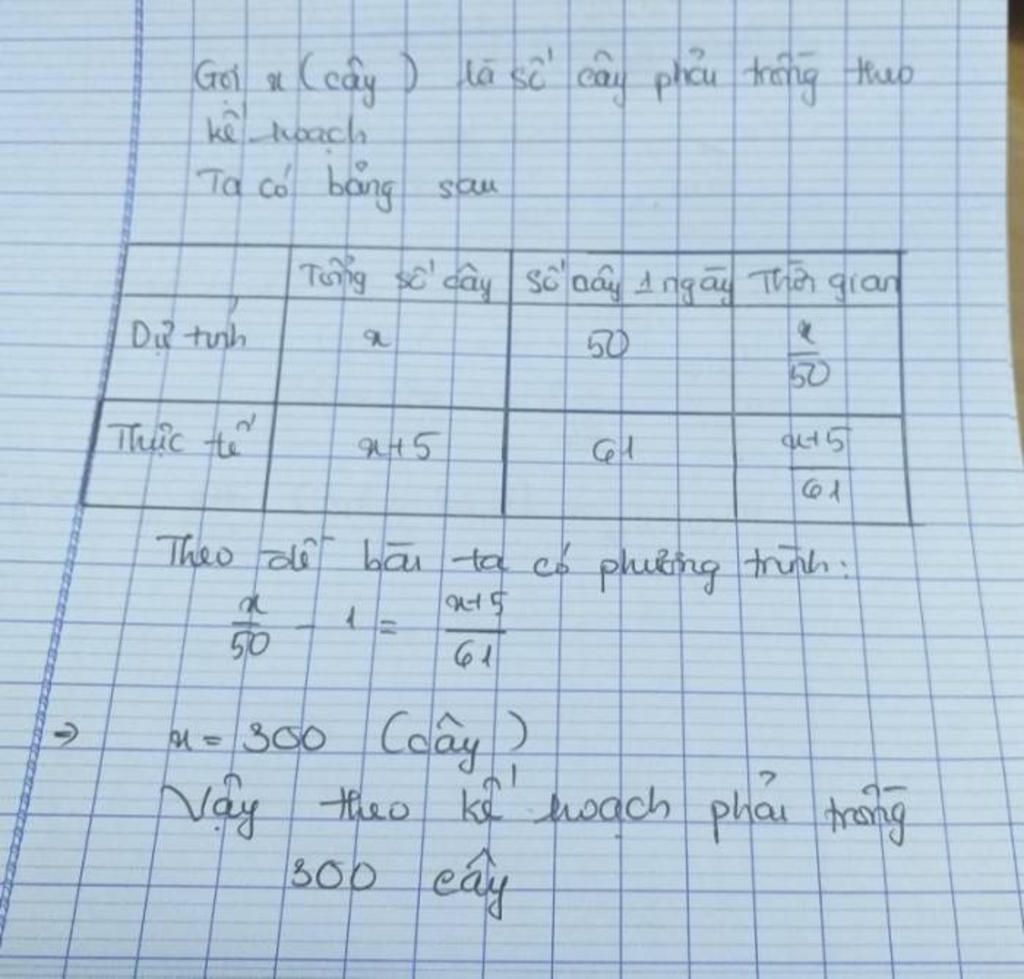 Gọi x (cây) là số cây phải trồng theo
kế hoạch
Ta có bảng sau
Tổng số cây Số cây 1 ngày Thời gian
Dự tính x 50 x/50
Thực tế x+5 61 x+5/61
Theo đề bài ta có phương trình:
x/50 - 1 = x+5/61
⇒ x = 300 (cây)
Vậy theo kế hoạch phải trồng
300 cây